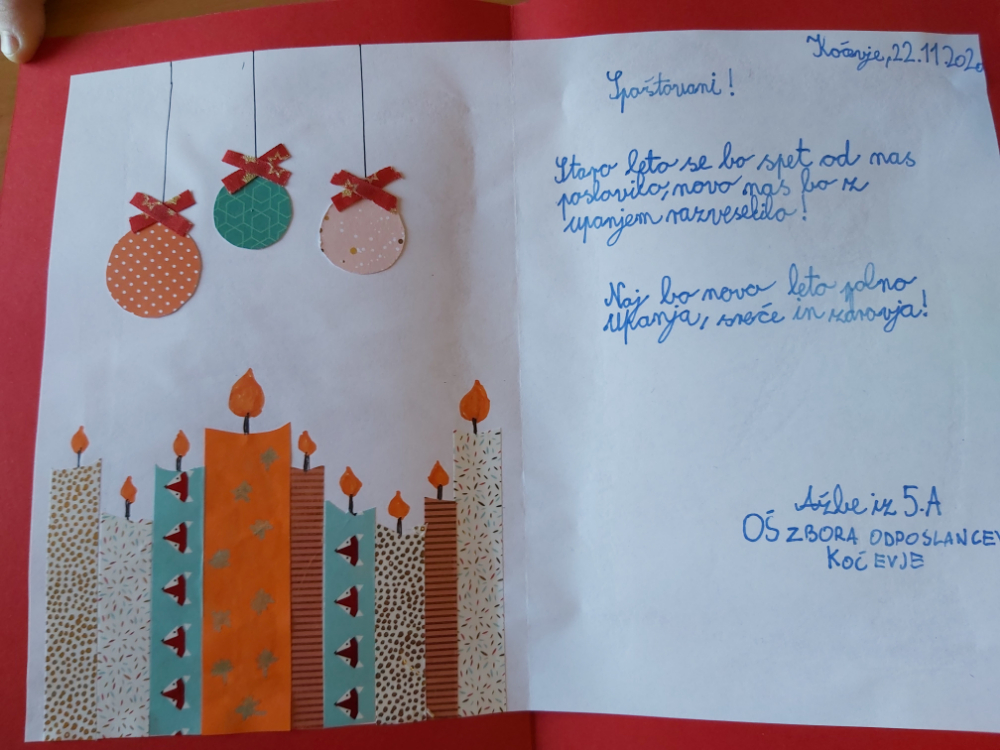 Kočevje, 22.11.2020
Spoštovani!
Staro leto se bo spet od nas
poslovilo, novo nas bo z
upanjem razveselilo!
Naj bo novo leto polno
upanja, sreče in zdravja!
Ažbe iz 5.A
OŠ ZBORA ODPOSLANCEV
KOČEVJE